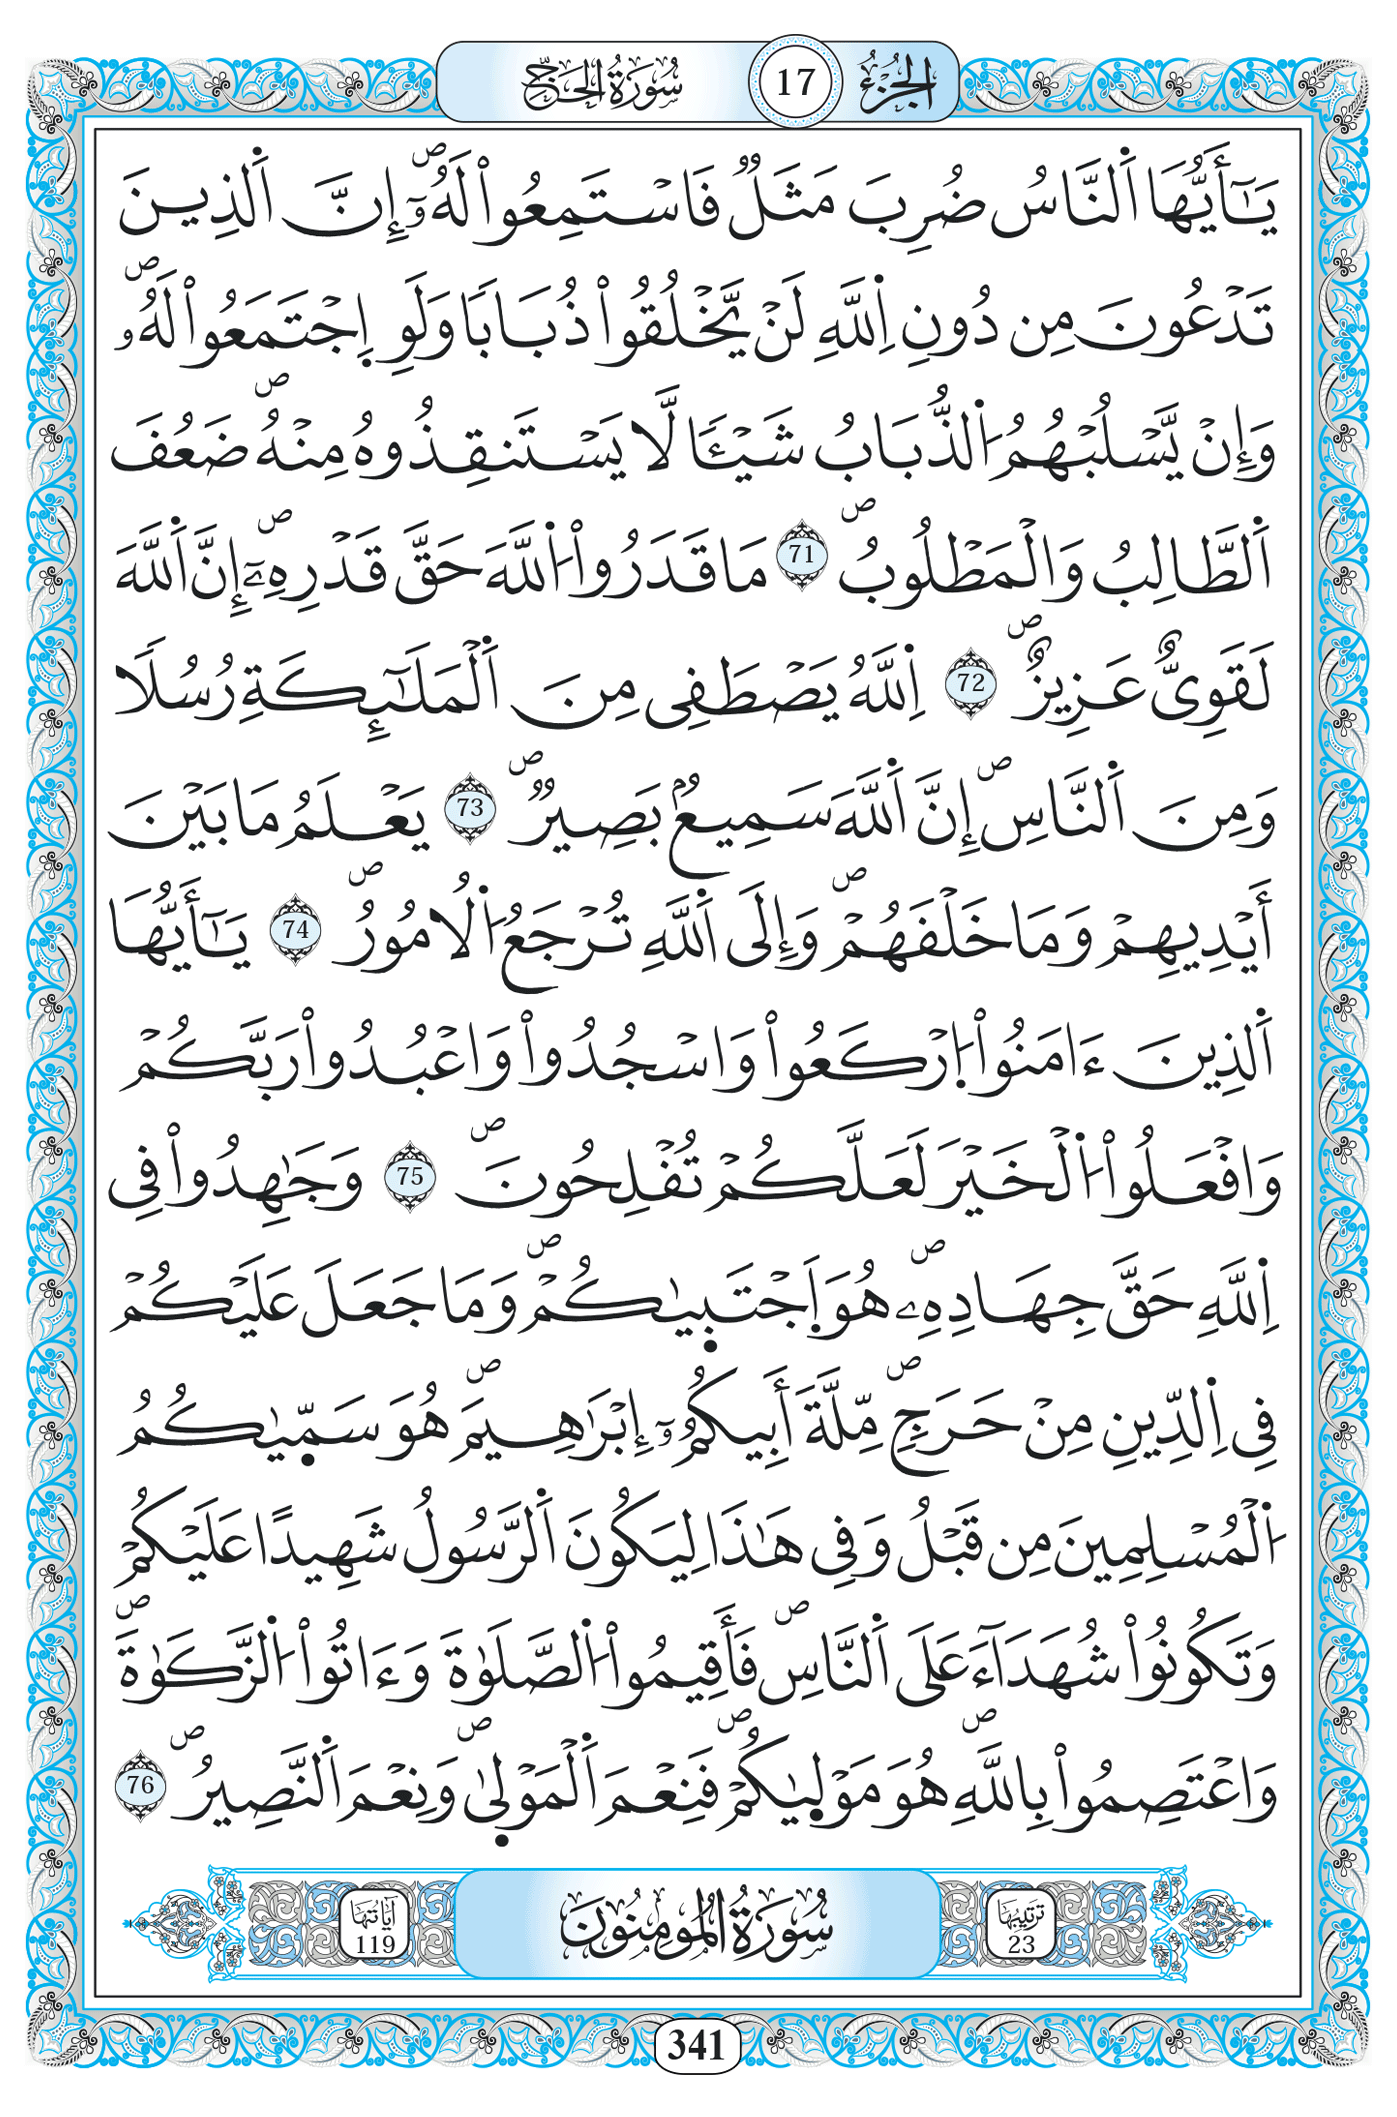 الجزء 17 سورة الحج
يَـٰٓأَيُّهَا اَ۬لنَّاسُ ضُرِبَ مَثَلٞ فَاسْتَمِعُواْ لَهُۥٓۖ إِنَّ اَ۬لذِينَ
تَدْعُونَ مِن دُونِ اِ۬للَّهِ لَنْ يَّخْلُقُواْ ذُبَاباٗ وَلَوِ اِ۪جْتَمَعُواْ لَهُۥۖ
وَإِنْ يَّسْلُبْهُمُ اُ۬لذُّبَابُ شَيْـٔاٗ لَّا يَسْتَنقِذُوهُ مِنْهُۖ ضَعُفَ
اَ۬لطَّالِبُ وَالْمَطْلُوبُۖ 71 مَا قَدَرُواْ اُ۬للَّهَ حَقَّ قَدْرِهِۦٓۖ إِنَّ اَ۬للَّهَ
لَقَوِيٌّ عَزِيزٌۖ 72 اِ۬للَّهُ يَصْطَفِي مِنَ اَ۬لْمَلَـٰٓئِكَةِ رُسُلاٗ
وَمِنَ اَ۬لنَّاسِۖ إِنَّ اَ۬للَّهَ سَمِيعُۢ بَصِيرٞۖ 73 يَعْلَمُ مَا بَيْنَ
أَيْدِيهِمْ وَمَا خَلْفَهُمْۖ وَإِلَى اَ۬للَّهِ تُرْجَعُ اُ۬لُامُورُۖ 74 يَـٰٓأَيُّهَا
اَ۬لذِينَ ءَامَنُواْ اُ۪رْكَعُواْ وَاسْجُدُواْ وَاعْبُدُواْ رَبَّكُمْ
وَافْعَلُواْ اُ۬لْخَيْرَ لَعَلَّكُمْ تُفْلِحُونَۖ 75 وَجَـٰهِدُواْ فِي
اِ۬للَّهِ حَقَّ جِهَادِهِۦۖ هُوَ اَ۪جْتَب۪يٰكُمْۖ وَمَا جَعَلَ عَلَيْكُمْ
فِي اِ۬لدِّينِ مِنْ حَرَجٖۖ مِّلَّةَ أَبِيكُمُۥٓ إِبْرَٰهِيمَۖ هُوَ سَمّ۪يٰكُمُ
اُ۬لْمُسْلِمِينَ مِن قَبْلُ وَفِي هَـٰذَا لِيَكُونَ اَ۬لرَّسُولُ شَهِيدًا عَلَيْكُمْ
وَتَكُونُواْ شُهَدَآءَ عَلَى اَ۬لنَّاسِۖ فَأَقِيمُواْ اُ۬لصَّلَوٰةَ وَءَاتُواْ اُ۬لزَّكَوٰةَۖ
وَاعْتَصِمُواْ بِاللَّهِۖ هُوَ مَوْل۪يٰكُمْۖ فَنِعْمَ اَ۬لْمَوْل۪يٰۖ وَنِعْمَ اَ۬لنَّصِيرُۖ 76
ترتيبها 23 سُورَةُ المُومِنُونَ آياتها 119
341